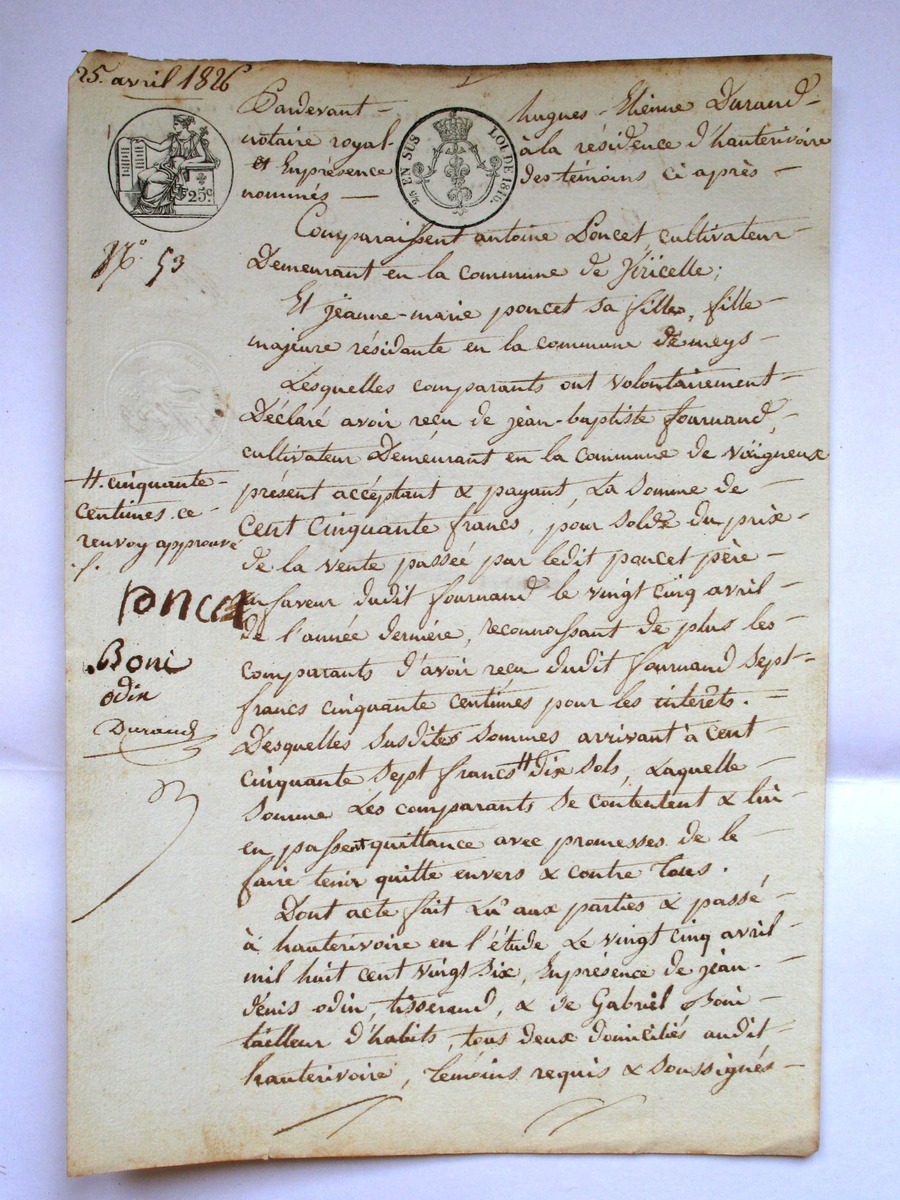 25. avril 1826
Pardevant hugues-Etienne Durand
notaire royal à la résidence d'hauterivoire
et Enprésence des témoins ci après
nommés
25 EN SUS LOI DE 1816.
25 c.
N.º 53
Comparaissent antoine Poncet, cultivateur
Demeurant en la commune de Viricelle;
Et jëanne-marie poncet sa fille, fille
majeure résidante en la commune de meys
Lesquelles comparants ont volontairement
Déclaré avoir reçu de jean-baptiste fournand,
cultivateur Demeurant en la commune de
présent accéptant & payant, La somme de
cent cinquante francs, pour solde du prix
de la vente passée par ledit poncet père
en faveur dudit fournand le vingt cinq avril
de l'année dernière, reconnaissant de plus les
comparants d'avoir reçu dudit fournand sept
francs cinquante centimes pour les interêts.
Desquelles susdites sommes arrivant à cent
cinquante sept francs # dix sols, Laquelle
somme Les comparants se contentent & lui
en passent quittance avec promesses de le
faire tenir quitte envers & contre tous.
Dont acte fait Lu aux parties & passé
à hauterivoire en l'étude Le vingt cinq avril
mil huit cent vingt six, Enprésence de jean-
denis odin, tisserand, & de Gabriel Boni
tailleur d'habits, tous deux domiciliés audit
hauterivoire, témoins requis & soussignés
# cinquante
centimes. ce
renvoy approuvé
Poncet
Boni
odin
Durand